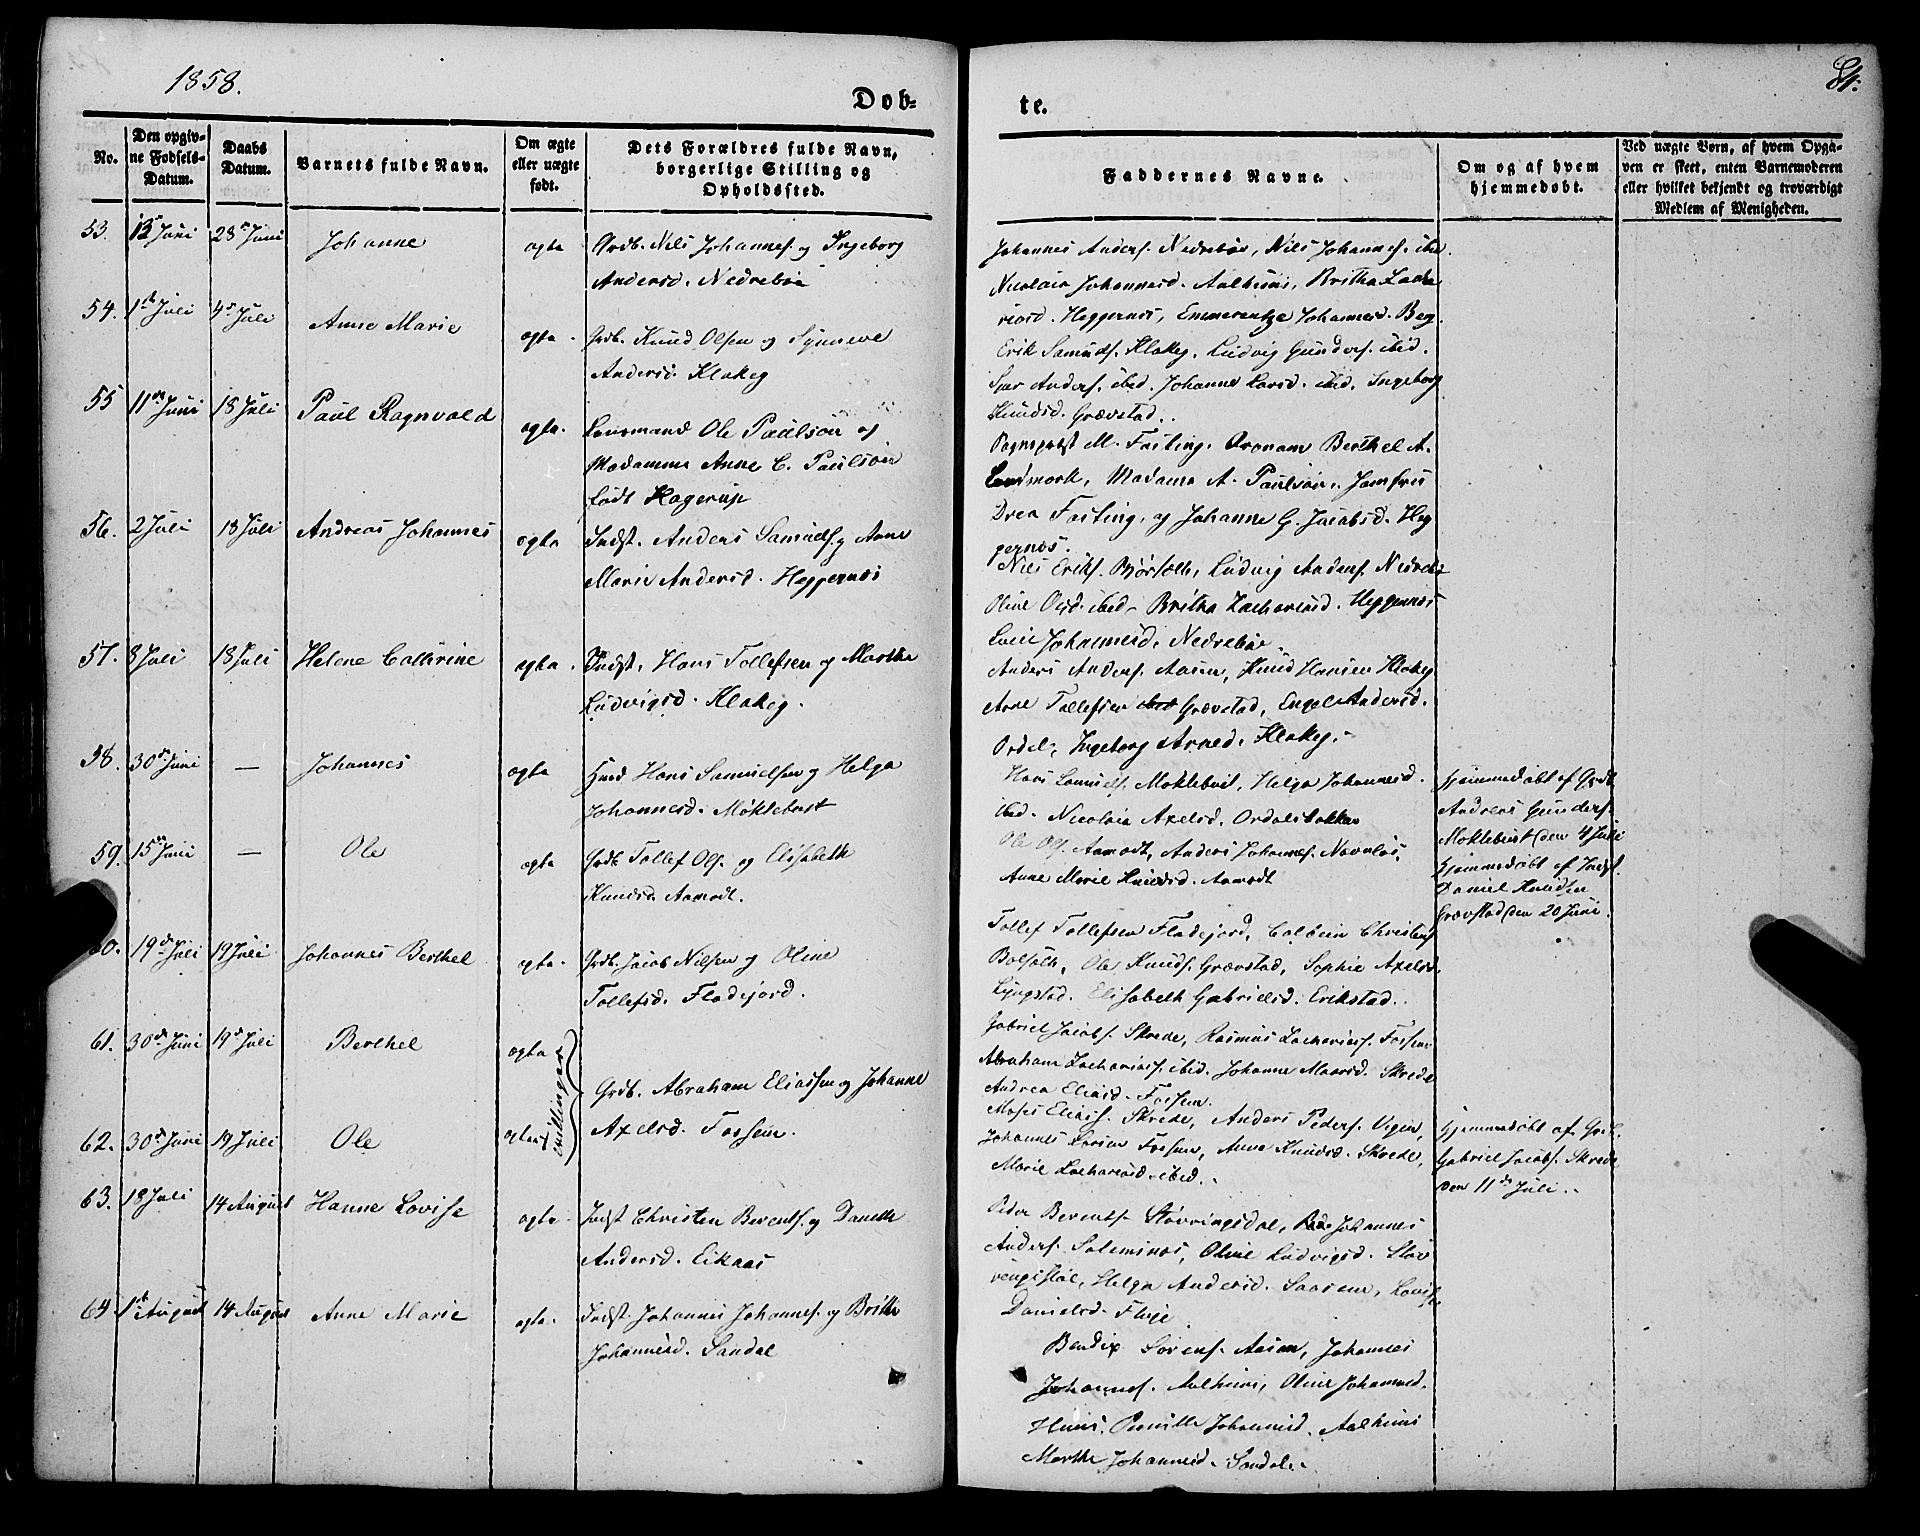 1858.
81.
Döb-
te.
No.
Den opgiv-
ne Födsels-
Datum.
Daabs
Datum.
Barnets fulde Navn.
Om ægte
eller uægte
født.
Dets Forældres fulde Navn,
borgerlige Stilling og
Opholdssted.
Faddernes Navne.
Om og af hvem
hjemmedøbt.
Ved uægte Børn, af hvem Opga-
ven er skeet, enten Barnemoderen
eller hvilket bekjendt og troværdigt
Medlem af Menigheden.
53. Juni 28 Juni Johanne ægte Grdb. Nils Johannes. og Ingeborg
Andersd. Nedrebøe
Johannes Anders. Nedrebøe, Nils Johannes. ibd
Nicolaia Johannesd. Aalhuus, Britha Zacha
riasd. Heggernes, Emmerentze Johannesd. Berg
54. 1ste Juli 4de Juli Anne Marie ægte Grdb. Knud Olsen og Synneve
Andersd. Klakeg
Erik Samuels. Klakeg, Ludvig Gunders. ibid.
Anders. ibid. Johanne Larsd. ibid, Ingeborg
Knudsd. Grævstad.
55 11te Juni 18 Juli Paul Ragnvald ægte. Lensmand Ole Paulson og
Madamme Anne C. Paulson
født Hagerup
Sogneprest M. Fasting. Berthel A.
Landmark, Madame A. Paulson, Jomfru
Drea Fasting, og Johanne G. Jacobsd. Heg
gernes.
56. 2 Juli 18 Juli Andreas Johannes ægte Indst. Anders Samuels. og Anne
Marie Andersd. Heggernes
Nils Eriks. Bjørsæth, Ludvig Anders. Nedrebø
Oline Olsd. ibid. Britha Zachariasd. Heggernes
Johannesd. Nedrebøe.
57. 8 Juli 18 Juli Helene Cathrine ægte Indst. Hans Tollefsen og Marthe
Ludvigsd. Klakeg.
Anders Anders. Aasen, Knud Hansen Klakeg
Arne Tollefsen ibid Grævstad, Engel Andersd.
Ordal, Ingeborg Arned. Klakeg.
58. 30de Juni — Johannes ægte Hmd Hans Samuelsen og Helga
Johannesd. Møklebust
Hans Samuels. Moklebust, Helga Johannesd.
ibid. Nicolaia Axelsd. Ordalsbakken
Hjemmedøbt af Grdb.
Andreas Gunders.
Moklebust den 4 Juli
59. 15de Juni — Ole ægte Grdb. Tollef Ols. og Elisabeth
Knudsd. Aamodt.
Ole Ols. Aamodt, Anders Johannes. Navnløs,
Anne Marie Knudsd. Aamodt
Hjemmedøbt af Indst.
Daniel Knudsen
Grævstad den 20 Juni.
60. 19de Juli 19 Juli Johannes Berthel ægte Grdb. Jacob Nilsen og Oline
Tollefsd. Fladejord.
Tollef Tollefsen Fladejord, Colbein Christens.
Bolsæth, Ole Knuds. Grævstad, Sophie Axelsd.
Lyngstad. Elisabeth Gabrielsd. Erikstad.
61. 30de Juni 19de Juli Berthel ægte
tvillinger
Grdb. Abraham Eliassen og Johanne
Axelsd. Fossem.
Gabriel Jacobs. Skrede, Rasmus Zacharias. Fossem
Abraham Zacharias. ibid. Johanne Skrede
Andrea Eliasd. Fossem.
62. 30de Juni 19 Juli Ole ægte
Moses Elias. Skrede, Anders Peders. Vigen,
Johannes Larsen Fossem, Anne Knudsd. Skrede,
Marie Zachariasd. ibid.
Hjemmedøbt af Grdb.
Gabriel Jacobs. Skrede
den 11de Juli.
63. 18 Juli 14 August Hanne Lovise ægte Indst Christen Berents. og Danette
Andersd. Eikaas
Peder Berents. Støvringsdal, Johannes
Anders. Oline Ludvigsd. Støv
Helga Andersd. Lovise
Danielsd. Fluge
64. 1ste August 14 August Anne Marie ægte. Indst Johannes Johannes. og Brithe
Johannesd. Sandal
Bendix Sørens. Aasen, Johannes
Johannes. Aalheim, Oline Johannesd.
Huus. Pernille Johannesd. Aalheim
Marthe Johannesd. Sandal.